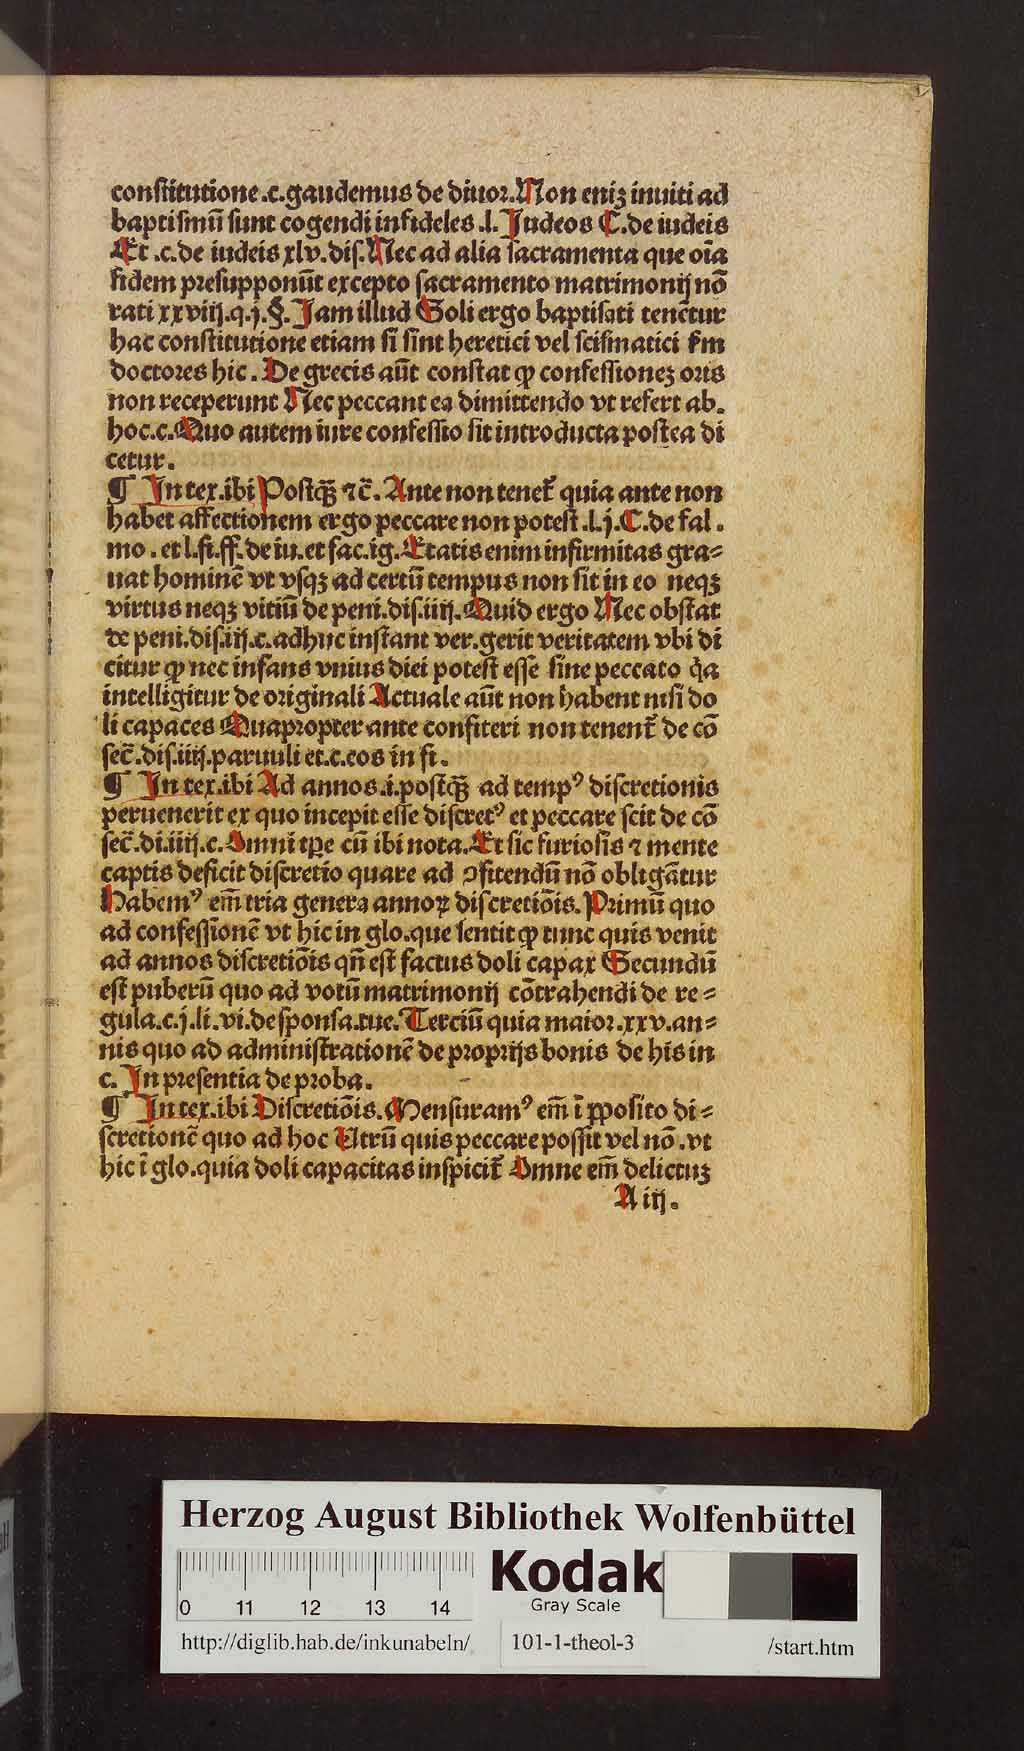 constitutione .c.gaudemus de diuor.Non eniʒ inuiti ad
baptismū sunt cogendi infideles .l.Judeos C.de iudeis
Et .c.de iudeis xlv.dis.Nec ad alia sacramenta que oīa
fidem presupponūt excepto sacramento matrimonij nō
rati xxviij.q.j.§.Jam illud Soli ergo baptisati tenētur
hac constitutione etiam si sint heretici vel scismatici s̄m
doctores hic. De grecis aūt constat ꝙ confessioneʒ oris
non receperunt Nec peccant ea dimittendo vt refert ab.
hoc.c.Quo autem iure confessio sit introducta postea di
cetur.
¶ In tex.ibi Postqꝫ̄ ⁊c̄. Ante non tenet᷑ quia ante non
habet affectionem ergo peccare non potest .l.j.C.de fal.
mo. et l.fi.ff.de iu.et fac.ig.Etatis enim infirmitas gra⸗
uat hominē vt vsqꝫ ad certū tempus non sit in eo neqꝫ
virtus neqꝫ vitiū de peni.dis.iiij.Quid ergo Nec obstat
de peni.dis.iij.c.adhuc instant ver.gerit veritatem vbi di
citur ꝙ nec infans vnius diei potest esse sine peccato q̄a
intelligitur de originali Actuale aūt non habent nisi do
li capaces Quapropter ante confiteri non tenent᷑ de cō
sec̄.dis.iiij.paruuli et.c.eos in fi.
¶ In tex.ibi Ad annos.i.postqꝫ̄ ad tempꝰ discretionis
peruenerit ex quo incepit esse discretꝰ et peccare scit de cō
sec̄.di.iiij.c.Omni tꝑe cū ibi nota.Et sic furiosis ⁊ mente
captis deficit discretio quare ad ꝯfitendū nō obligātur
Habemꝰ em̄ tria genera annoꝝ discretiōis.Primū quo
ad confessionē vt hic in glo.que sentit ꝙ tunc quis venit
ad annos discretiōis qn̄ est factus doli capax Secundū
est puberū quo ad votū matrimonij cōtrahendi de re⸗
gula.c.j.li.vi.de sponsa.tue.Terciū quia maior.xxv.an⸗
nis quo ad administrationē de proprijs bonis de his in
c. In presentia de proba.
¶ In tex.ibi Discretiōis.Mensuramꝰ em̄ ī ꝓposito di⸗
scretionē quo ad hoc Utrū quis peccare possit vel nō .vt
hic ī glo.quia doli capacitas inspicit᷑ Omne em̄ delictuʒ
A iij.
Herzog August Bibliothek Wolfenbüttel
Kodak
Gray Scale
0 11 12 13 14
http://diglib.hab.de/inkunabeln/ 101-1-theol-3 /start.htm